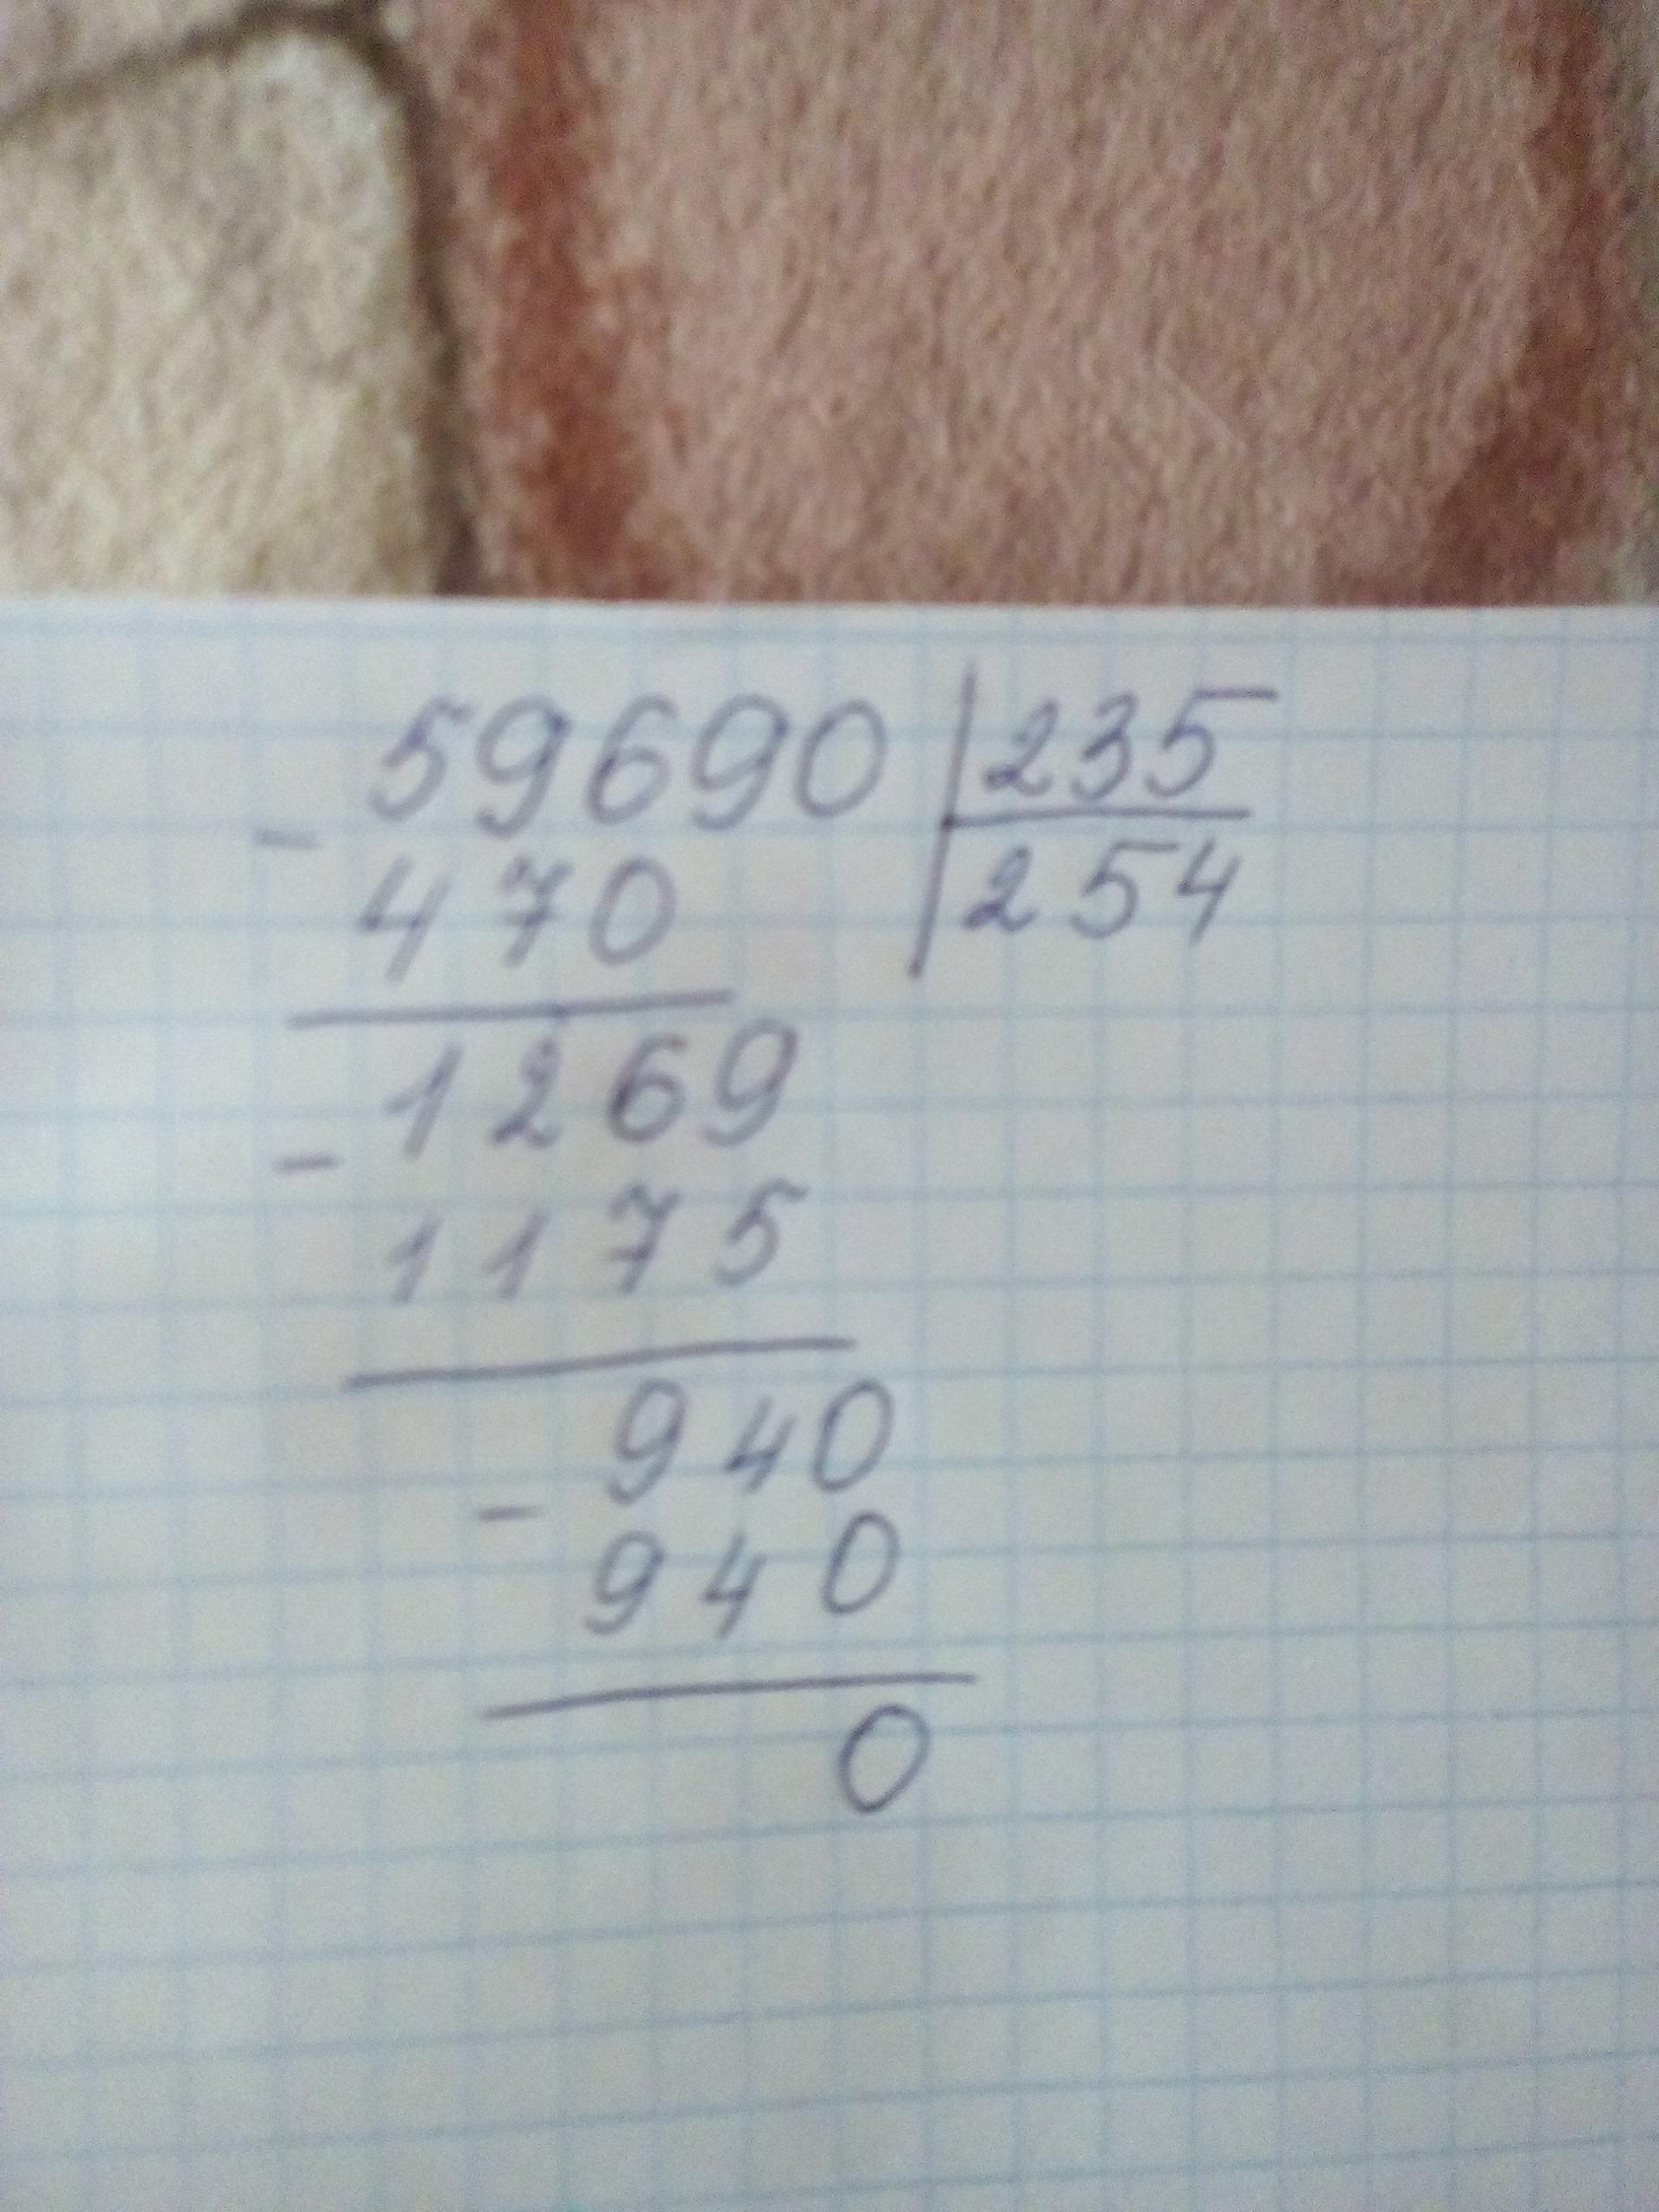 59690 235
- 470 254
1269
- 1175
940
- 940
0